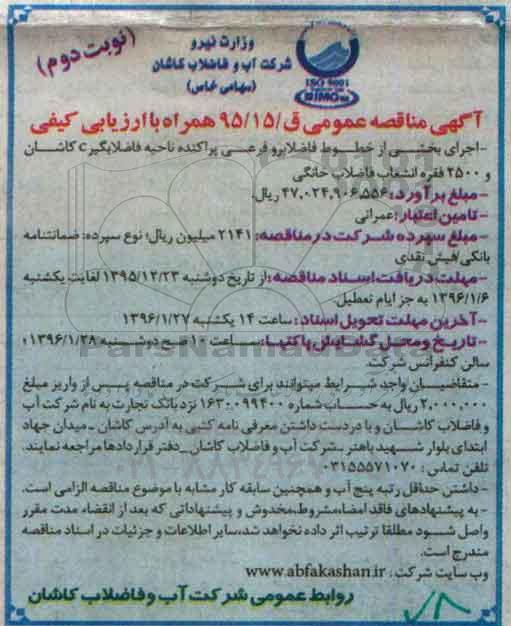 (نوبت دوم)
وزارت نیرو
شرکت آب و فاضلاب کاشان
(سهامی خاص)
ISO 9001
آگهی مناقصه عمومی ق/۹۵/۱۵ همراه با ارزیابی کیفی
-اجرای بخشی از خطوط فاضلابرو فرعی پراکنده ناحیه فاضلابگیر C کاشان
و ۲۵۰۰ فقره انشعاب فاضلاب خانگی
-مبلغ برآورد: ۴۷,۰۲۴,۹۰۶,۵۵۶ ریال.
-تامین اعتبار: عمرانی
-مبلغ سپرده شرکت در مناقصه: ۲۱۴۱ میلیون ریال؛ نوع سپرده: ضمانتنامه
بانکی/فیش نقدی
-مهلت دریافت اسناد مناقصه: از تاریخ دوشنبه ۱۳۹۵/۱۲/۲۳ لغایت یکشنبه
۱۳۹۶/۱/۶ به جز ایام تعطیل.
-آخرین مهلت تحویل اسناد: ساعت ۱۴ یکشنبه ۱۳۹۶/۱/۲۷
-تاریخ و محل گشایش پاکتها: ساعت ۱۰ صبح دوشنبه ۱۳۹۶/۱/۲۸؛
سالن کنفرانس شرکت.
-متقاضیان واجد شرایط میتوانند برای شرکت در مناقصه پس از واریز مبلغ
۲,۰۰۰,۰۰۰ ریال به حساب شماره ۱۶۳۰۰۹۹۴۰۰ نزد بانک تجارت به نام شرکت آب
و فاضلاب کاشان و با در دست داشتن معرفی نامه کتبی به آدرس کاشان ـ میدان جهاد
ابتدای بلوار شهید باهنر ـ شرکت آب و فاضلاب کاشان ـ دفتر قراردادها مراجعه نمایند.
تلفن تماس: ۰۳۱۵۵۵۷۱۰۷۰
-داشتن حداقل رتبه پنج آب و همچنین سابقه کار مشابه با موضوع مناقصه الزامی است.
-به پیشنهادهای فاقد امضاء،مشروط،مخدوش و پیشنهاداتی که بعد از انقضاء مدت مقرر
واصل شود مطلقا ترتیب اثر داده نخواهد شد،سایر اطلاعات و جزئیات در اسناد مناقصه
مندرج است.
وب سایت شرکت: www.abfakashan.ir
روابط عمومی شرکت آب و فاضلاب کاشان
ParsNamadData